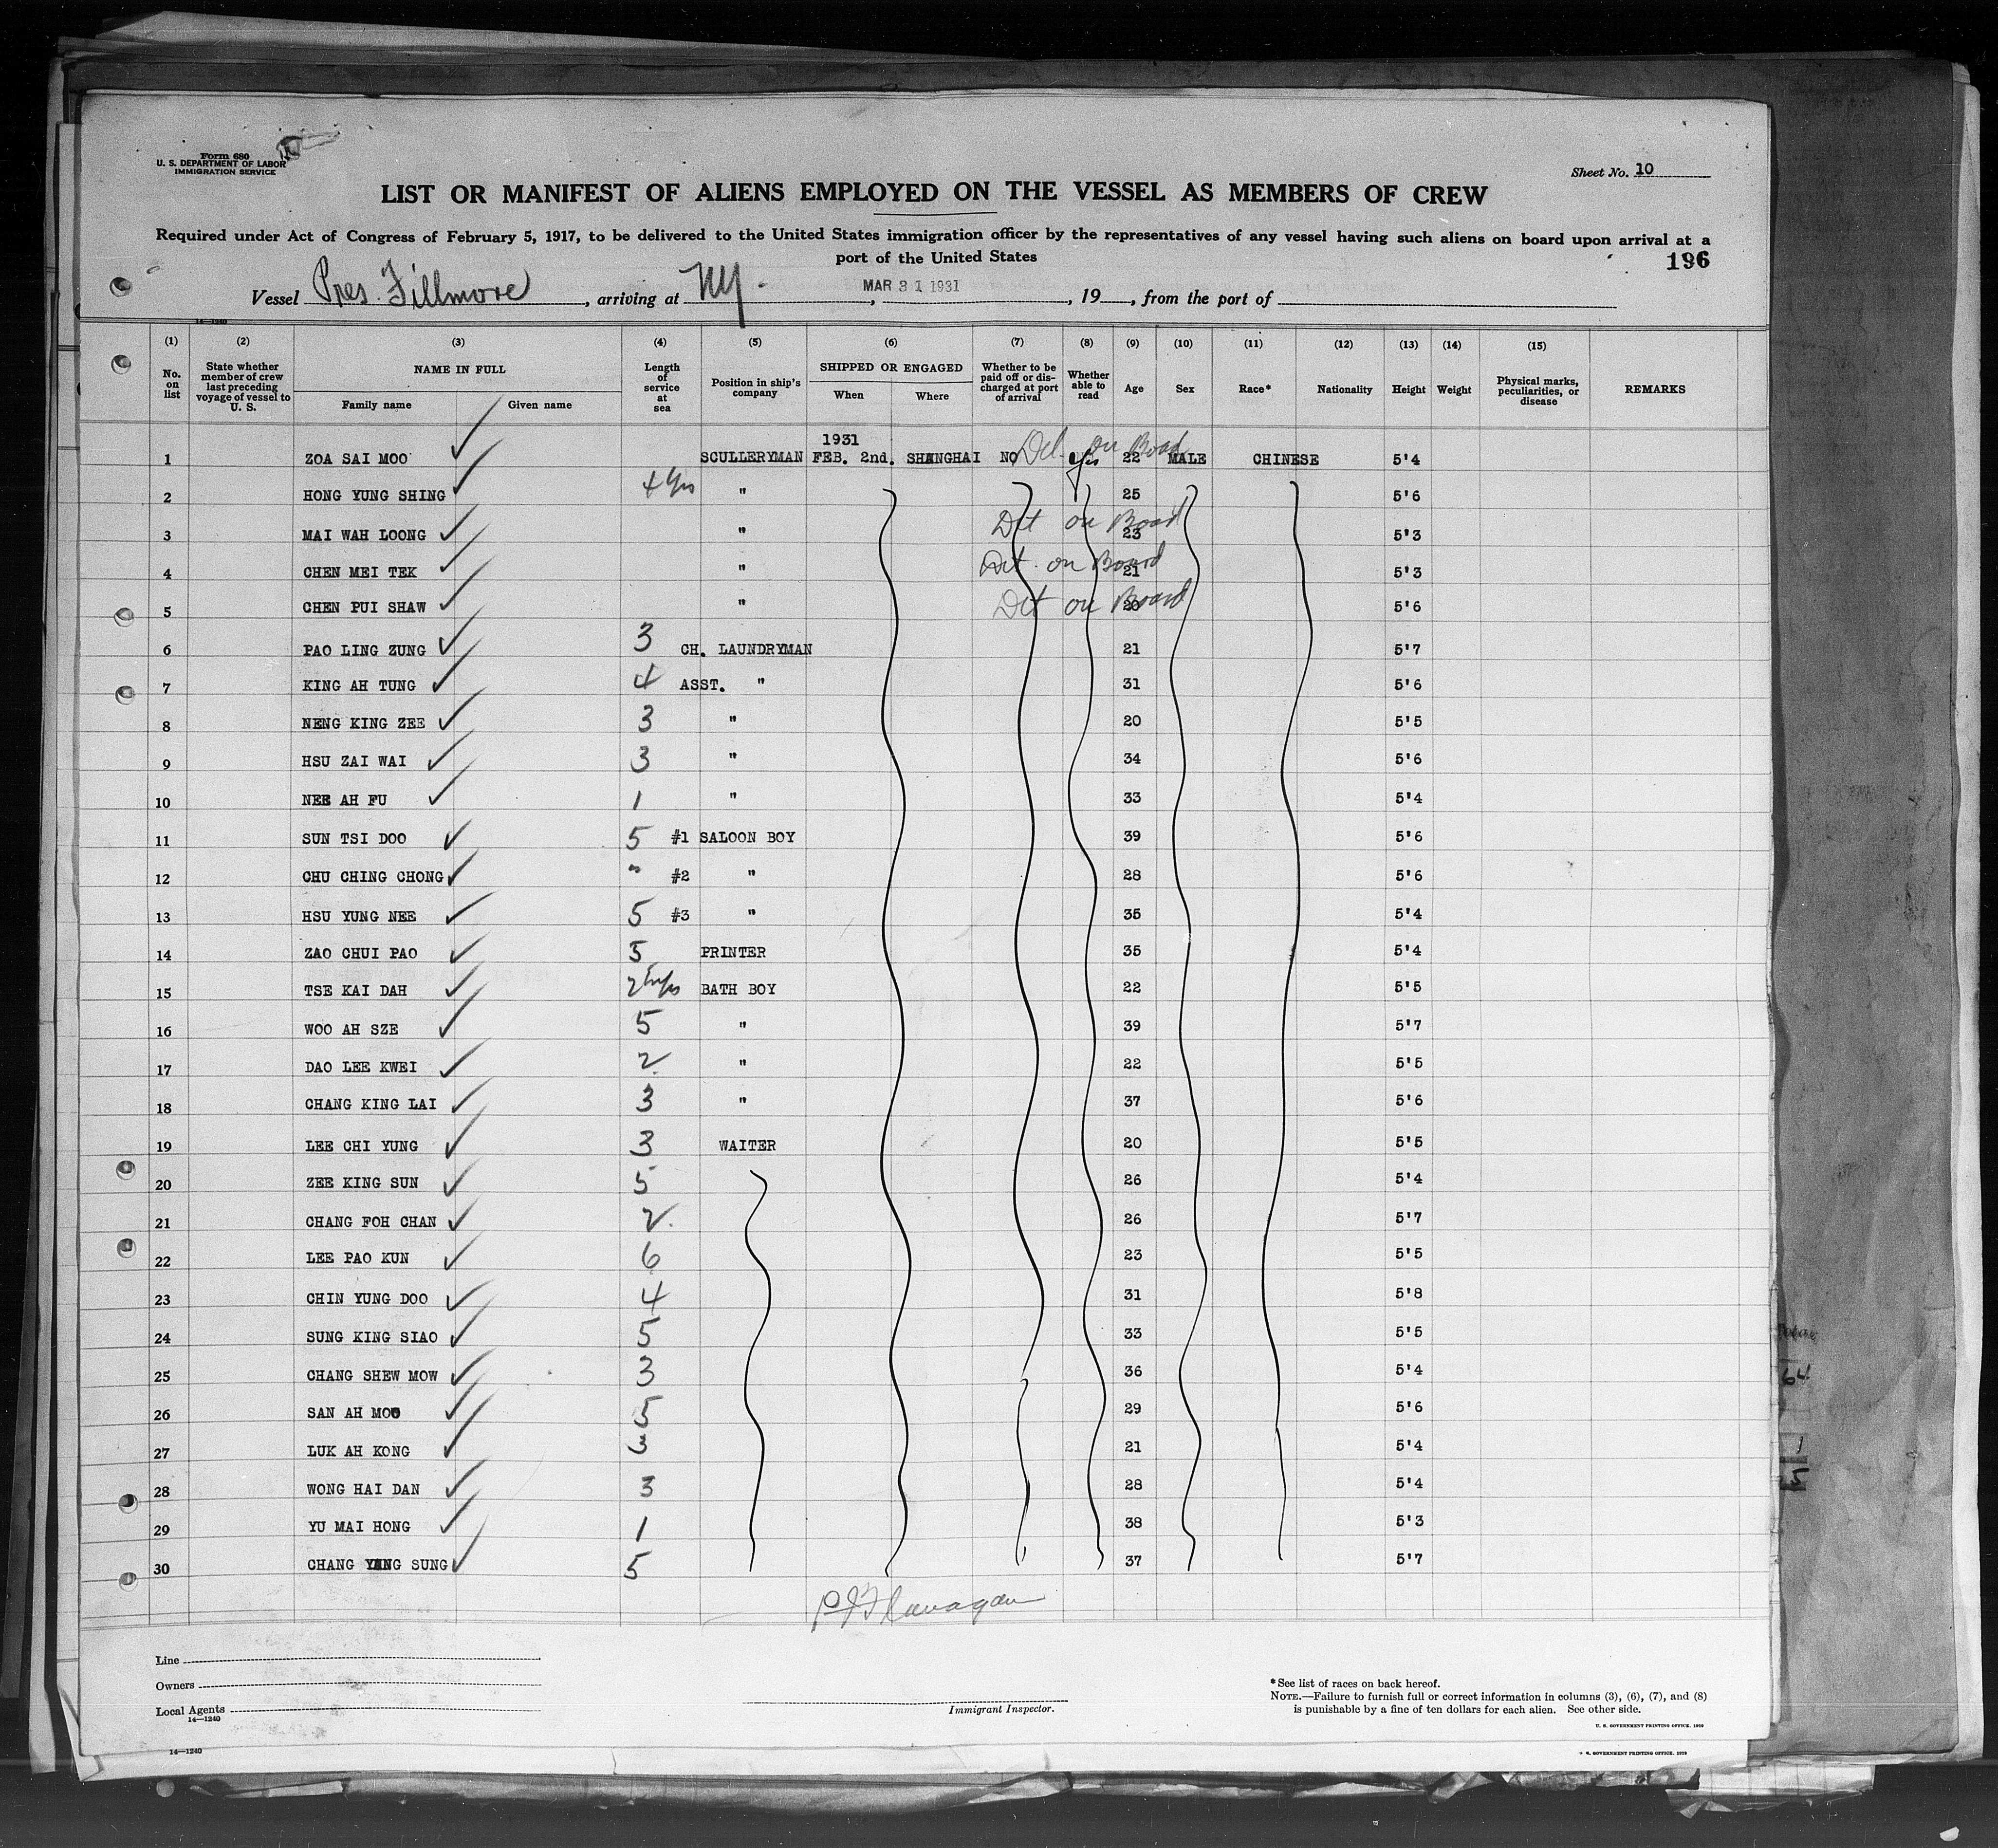 Form 680
U. S. DEPARTMENT OF LABOR
IMMIGRATION SERVICE
Sheet No. 10
LIST OR MANIFEST OF ALIENS EMPLOYED ON THE VESSEL AS MEMBERS OF CREW
Required under Act of Congress of February 5, 1917, to be delivered to the United States immigration officer by the representatives of any vessel having such aliens on board upon arrival at a
port of the United States
196
Vessel Pres. Fillmore, arriving at NY. MAR 31 1931, 19, from the port of
14—1240
(1) (2) (3) (4) (5) (6) (7) (8) (9) (10) (11) (12) (13) (14) (15)
No. on list State whether member of crew last preceding voyage of vessel to U. S. NAME IN FULL Family name Given name Length of service at sea Position in ship's company SHIPPED OR ENGAGED When Where Whether to be paid off or discharged at port of arrival Whether able to read Age Sex Race* Nationality Height Weight Physical marks, peculiarities, or disease REMARKS
1931
1 ZOA SAI MOO SCULLERYMAN FEB. 2nd. SHANGHAI NO Det. on Board yes 22 MALE CHINESE 5'4
2 HONG YUNG SHING 4 yrs " 25 5'6
3 MAI WAH LOONG " Det on Board 23 5'3
4 CHEN MEI TEK " Det. on Board 21 5'3
5 CHEN PUI SHAW " Det on Board 20 5'6
6 PAO LING ZUNG 3 CH. LAUNDRYMAN 21 5'7
7 KING AH TUNG 4 ASST. " 31 5'6
8 NENG KING ZEE 3 " 20 5'5
9 HSU ZAI WAI 3 " 34 5'6
10 NEE AH FU 1 " 33 5'4
11 SUN TSI DOO 5 #1 SALOON BOY 39 5'6
12 CHU CHING CHONG " #2 " 28 5'6
13 HSU YUNG NEE 5 #3 " 35 5'4
14 ZAO CHUI PAO 5 PRINTER 35 5'4
15 TSE KAI DAH 2 BATH BOY 22 5'5
16 WOO AH SZE 5 " 39 5'7
17 DAO LEE KWEI 2 " 22 5'5
18 CHANG KING LAI 3 " 37 5'6
19 LEE CHI YUNG 3 WAITER 20 5'5
20 ZEE KING SUN 5 26 5'4
21 CHANG FOH CHAN 2 26 5'7
22 LEE PAO KUN 6 23 5'5
23 CHIN YUNG DOO 4 31 5'8
24 SUNG KING SIAO 5 33 5'5
25 CHANG SHEW MOW 3 36 5'4
26 SAN AH MOO 5 29 5'6
27 LUK AH KONG 3 21 5'4
28 WONG HAI DAN 3 28 5'4
29 YU MAI HONG 1 38 5'3
30 CHANG SUNG 5 37 5'7
P J Flanagan
Line
Owners
Local Agents
14—1240
Immigrant Inspector.
*See list of races on back hereof.
NOTE.—Failure to furnish full or correct information in columns (3), (6), (7), and (8)
is punishable by a fine of ten dollars for each alien. See other side.
U. S. GOVERNMENT PRINTING OFFICE. 1929
14—1240
S. GOVERNMENT PRINTING OFFICE. 1929
64
1
5